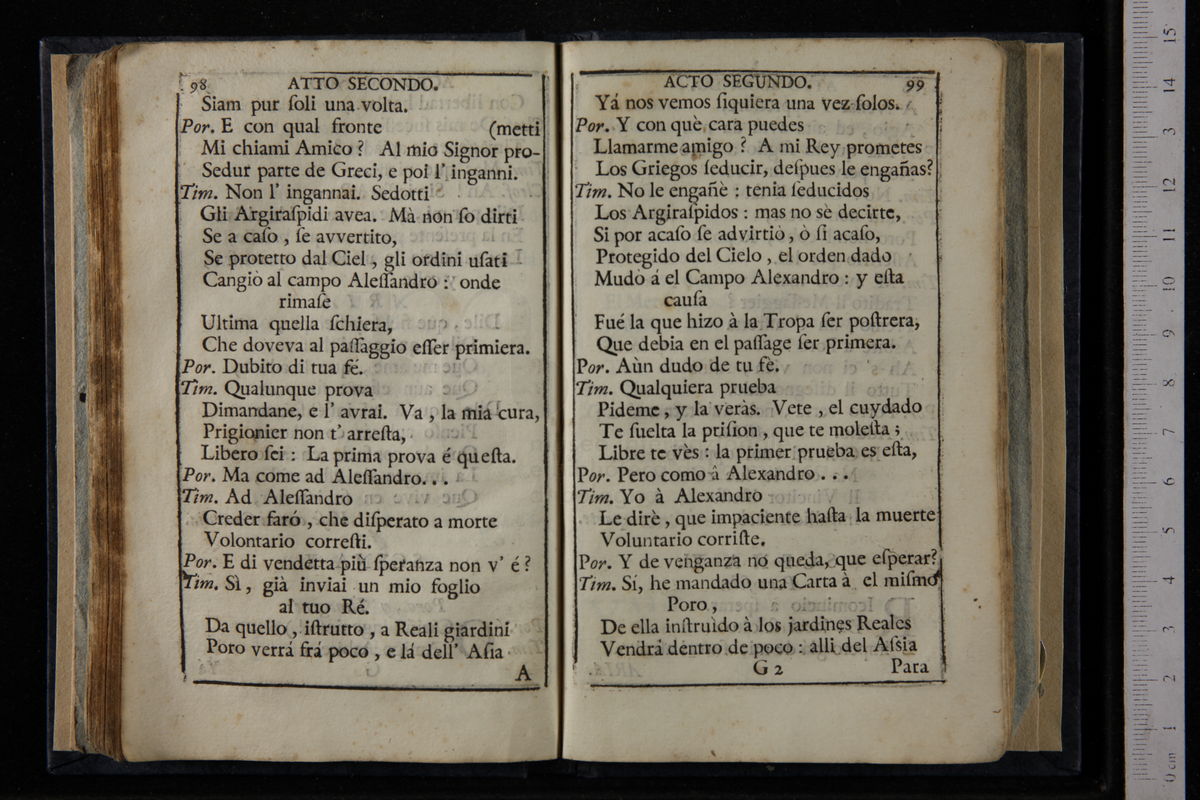 98 ATTO SECONDO.
Siam pur ſoli una volta.
Por. E con qual fronte (metti
Mi chiami Amico? Al mio Signor pro-
Sedur parte de Greci, e poi l' inganni.
Tim. Non l' ingannai. Sedotti
Gli Argiraſpidi avea. Mà non ſo dirti
Se a caſo, ſe avvertito,
Se protetto dal Ciel, gli ordini uſati
Cangiò al campo Aleſſandro: onde
rimaſe
Ultima quella ſchiera,
Che doveva al paſſaggio eſſer primiera.
Por. Dubito di tua fé.
Tim. Qualunque prova
Dimandane, e l' avrai. Va, la mia cura,
Prigionier non t' arreſta,
Libero ſei: La prima prova é queſta.
Por. Ma come ad Aleſſandro...
Tim. Ad Aleſſandro
Creder faró, che diſperato a morte
Volontario correſti.
Por. E di vendetta più ſperanza non v' é?
Tim. Sì, già inviai un mio foglio
al tuo Ré.
Da quello, iſtrutto, a Reali giardini
Poro verrá frá poco, e lá dell' Aſia
A
ACTO SEGUNDO. 99
Yá nos vemos ſiquiera una vez ſolos.
Por. Y con què cara puedes
Llamarme amigo? A mi Rey prometes
Los Griegos ſeducir, deſpues le engañas?
Tim. No le engañè: tenia ſeducidos
Los Argiraſpidos: mas no sè decirte,
Si por acaſo ſe advirtiò, ò ſi acaſo,
Protegido del Cielo, el orden dado
Mudò á el Campo Alexandro: y eſta
cauſa
Fué la que hizo à la Tropa ſer poſtrera,
Que debia en el paſſage ſer primera.
Por. Aùn dudo de tu fè.
Tim. Qualquiera prueba
Pideme, y la veràs. Vete, el cuydado
Te ſuelta la priſion, que te moleſta;
Libre te vès: la primer prueba es eſta,
Por. Pero como â Alexandro...
Tim. Yo à Alexandro
Le dirè, que impaciente haſta la muerte
Voluntario corriſte.
Por. Y de venganza no queda, que eſperar?
Tim. Sí, he mandado una Carta à el miſmo
Poro,
De ella inſtruido à los jardines Reales
Vendrá dentro de poco: alli del Aſsia
G 2 Para
15
14
13
12
11
10
9
8
7
6
5
4
3
2
1
0 cm